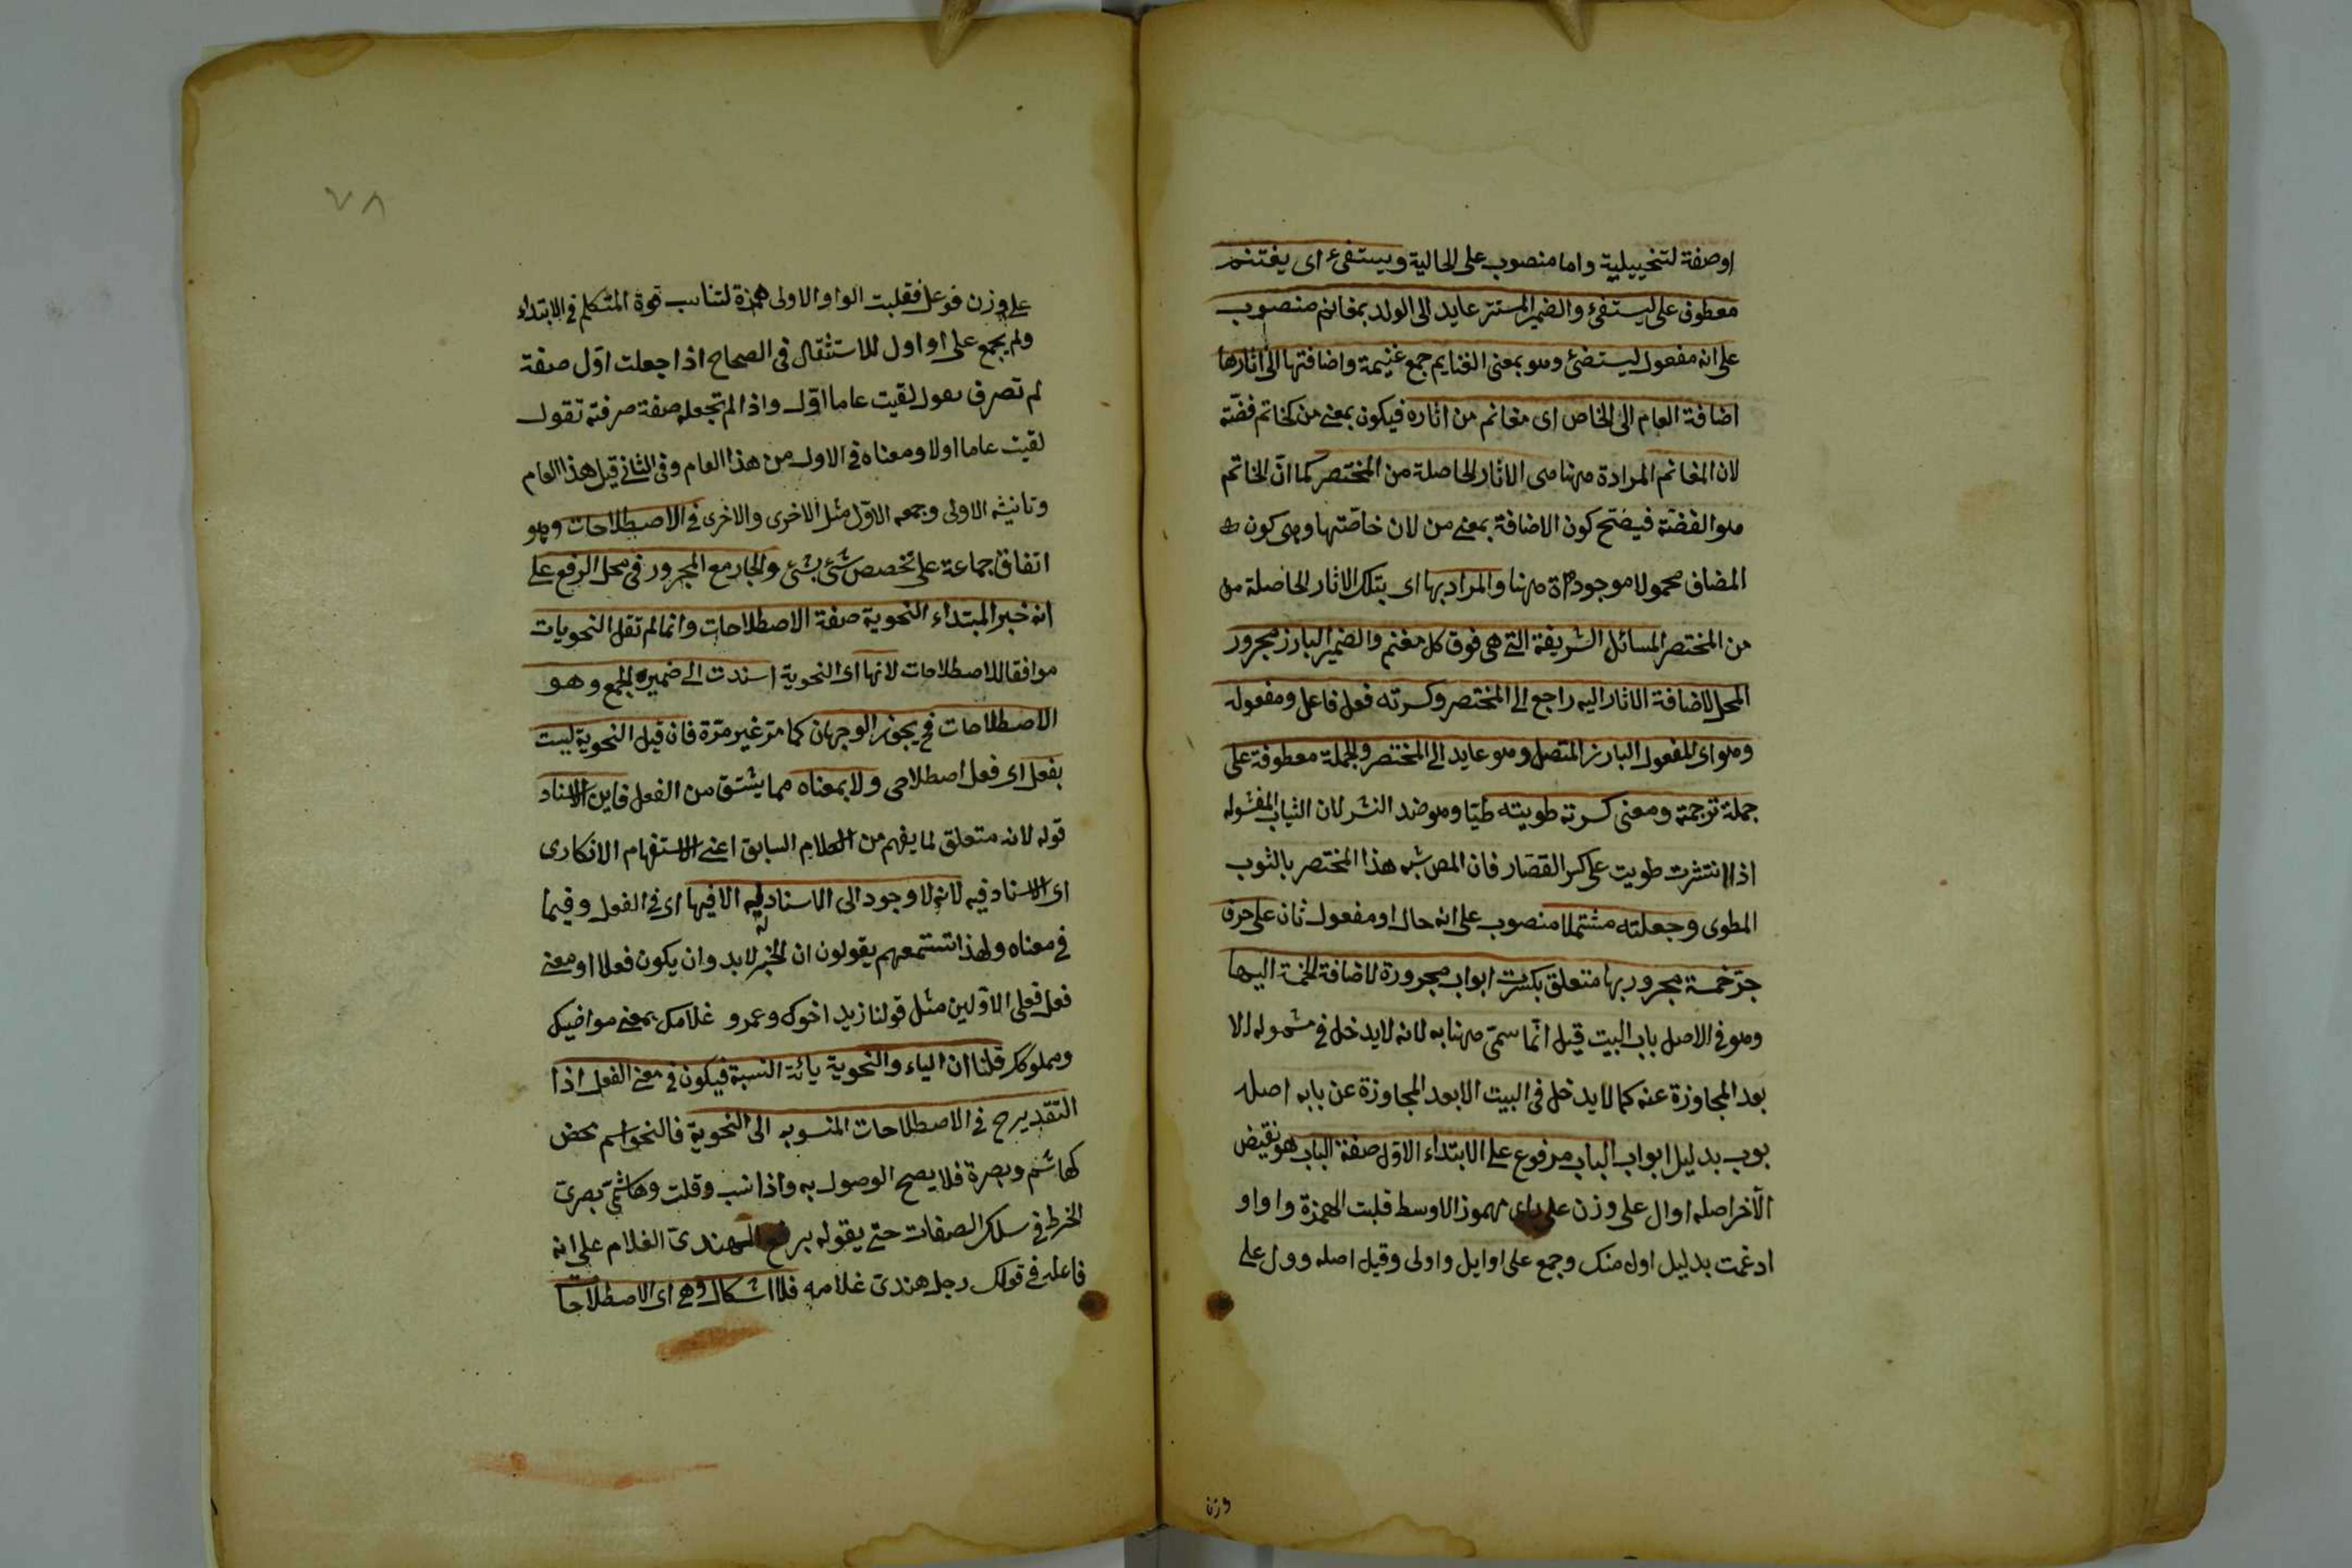 اوصفة لتخييلية واما منصوب على الحالية ويستفئ اى يغتنم
معطوف على ليستفئ والضمير المستتر عايد الى الولد بمغانم منصوب
على انه مفعول ليستضئ وهو بمعنى الغنايم جمع غنيمة واضافتها الى اثارها
اضافة العام الى الخاص اى مغانم من اثاره فيكون بمعنى من كخاتم فضّة
لان المغانم المرادة ههنا هى الاثار الحاصلة من المختصر كما انّ الخاتم
هو الفضّة فيصّح كون الاضافة بمعنى من لان خاصّتها وهى كون
المضاف محمولا موجودة ههنا والمراد بها اى بتلك الاثار الحاصلة من
من المختصر المسائل الشريفة التى هى فوق كل مغنم والضمير البارز مجرور
المحل لاضافة الاثار اليه راجع الى المختصر وكسرته فعل فاعل ومفعوله
وهو اى المفعول البارز المتصل وهو عايد الى المختصر والجملة معطوفة على
جملة ترجمة ومعنى كسرته طويته طيّا وهو ضد النشر لان الثياب المغسوله
اذا انتشرت طويت على كسر القصّار فان المص شبه هذا المختصر بالثوب
المطوى وجعلته مشتملا منصوب على انه حال او مفعول ثان على حرف
جرّ خمسة مجرور بها متعلق بكسرت ابواب مجرورة لاضافة الخمسة اليها
وهو فى الاصل باب البيت قيل انّما سمّى ههنا به لانه لايدخل فى مشموله الا
بعد المجاوزة عنه كما لايدخل فى البيت الا بعد المجاوزة عن بابه اصله
بوب بدليل ابواب الباب مرفوع على الابتداء الاوّل صفة الباب هو نقيض
الآخر اصله اوال على وزن على مهموز الاوسط قلبت الهمزة واوا و
ادغمت بدليل اول منك وجمع على اوايل واولى وقيل اصله وول على
وزن
٧٨
على وزن فوعل فقلبت الواو الاولى همزة لتناسب قوة المتكلم فى الابتداء
ولم يجمع على اواول للاستثقال فى الصحاح اذا جعلت اوّل صفة
لم تصرف يقول لقيت عاما اوّل واذا لم تجعله صفة صرفته تقول
لقيت عاما اولا ومعناه فى الاول من هذا العام وفى الثانى قبل هذا العام
وتانيثه الاولى وجمعه الاوّل مثل الاخرى والاخرى فى الاصطلاحات وهو
اتفاق جماعة على تخصص شئ بشئ والجار مع المجرور فى محل الرفع على
انه خبر المبتداء النحوية صفة الاصطلاحات وانما لم تقل النحويات
موافقا للاصطلاحات لانها اى النحوية اسندت الى ضمير الجمع وهو
الاصطلاحات فح يجوز الوجهان كما مرّ غير مرّة فان قيل النحوية ليست
بفعل اى فعل اصطلاحى ولا بمعناه مما يشتق من الفعل فاين الاسناد
قوله لانه متعلق لما يفهم من الكلام السابق اعنى الاستفهام الانكارى
اى الاسناد فيه لانه لا وجود الى الاسناد ليه الا فيها اى فى الفعل وفيما
فى معناه ولهذا تستمعهم يقولون ان الخبر لابد وان يكون فعلا او معنى
فعل فعلى الاوّلين مثل قولنا زيد اخوك وعمرو غلامك بمعنى مواخيك
ومملوكك قلنا ان الياء والنحوية يائة النسبة فيكون فى معنى الفعل اذا
التقدير ح فى الاصطلاحات المنسوبه الى النحوية فالنحو اسم محض
كهاشم وبصرة فلا يصح الوصول به واذا نسب وقلت وهاشمىّ بصرىّ
الخرط فى سلك الصفات حتى يقوله برفع الهندىّ الغلام على انه
فاعله فى قولك رجل هندىّ غلامه فلا اشكال وهى اى الاصطلاحات